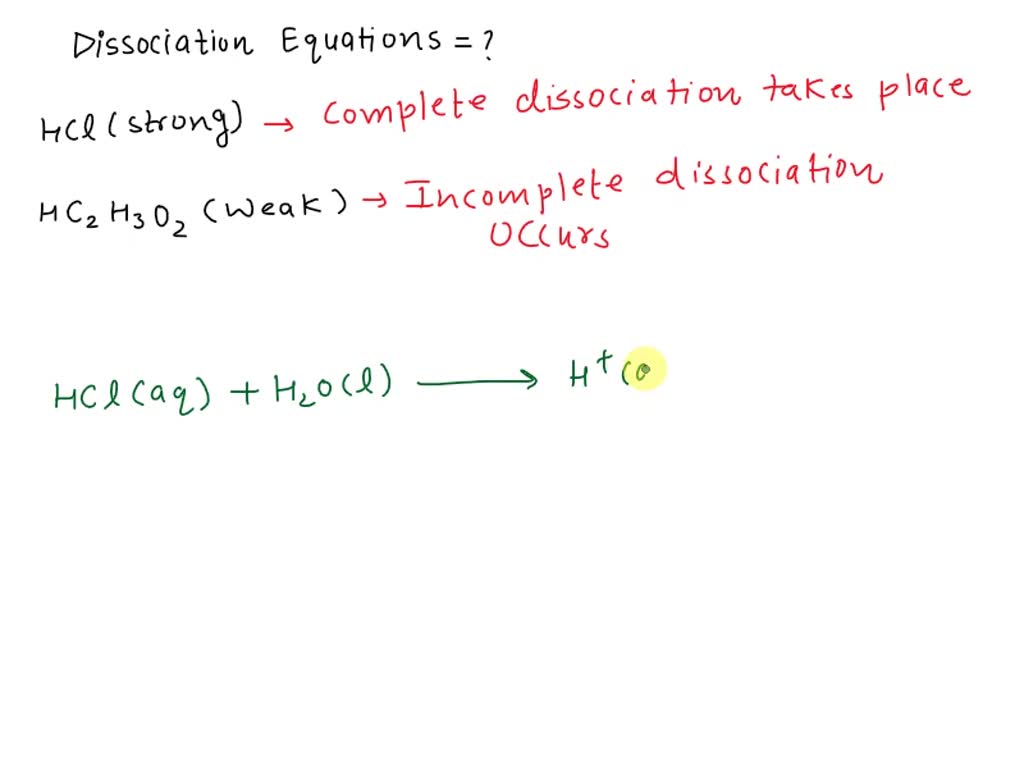 Dissociation Equations = ?
HCl (strong) → Complete dissociation takes place
HC₂H₃O₂ (Weak) → Incomplete dissociation
occurs
HCl(aq) + H₂O(l) ⟶ H⁺ (